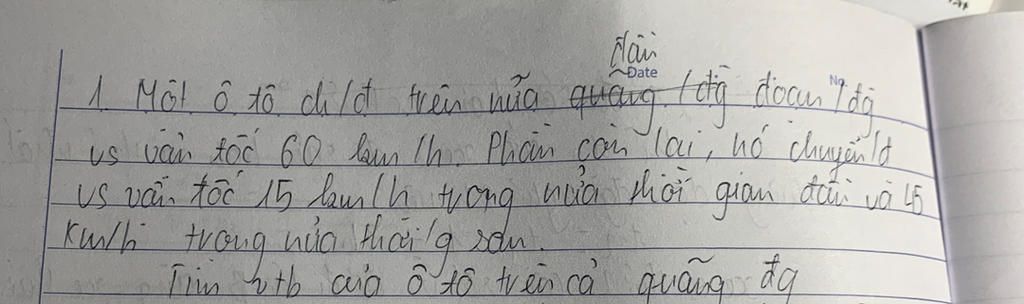 đầu
Date No
1. Một ô tô ch/đ trên nửa quãng /đg đoạn /đg
vs vận tốc 60 km/h. Phần còn lại, nó chuyển/đ
vs vận tốc 15 km/h trong nửa thời gian đầu và 45
km/h trong nửa thời/g sau.
Tìm vtb của ô tô trên cả quãng đg